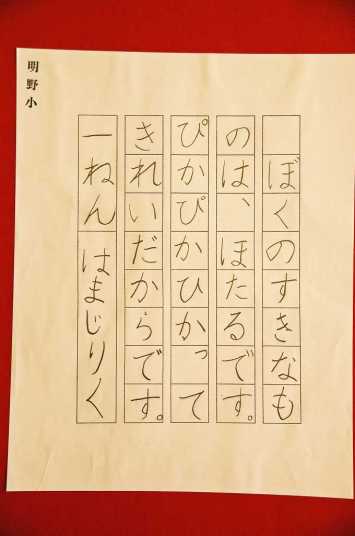 明野小
ぼくのすきなも
のは、ほたるです。
ぴかぴかひかって
きれいだからです。
一ねん はまじりく